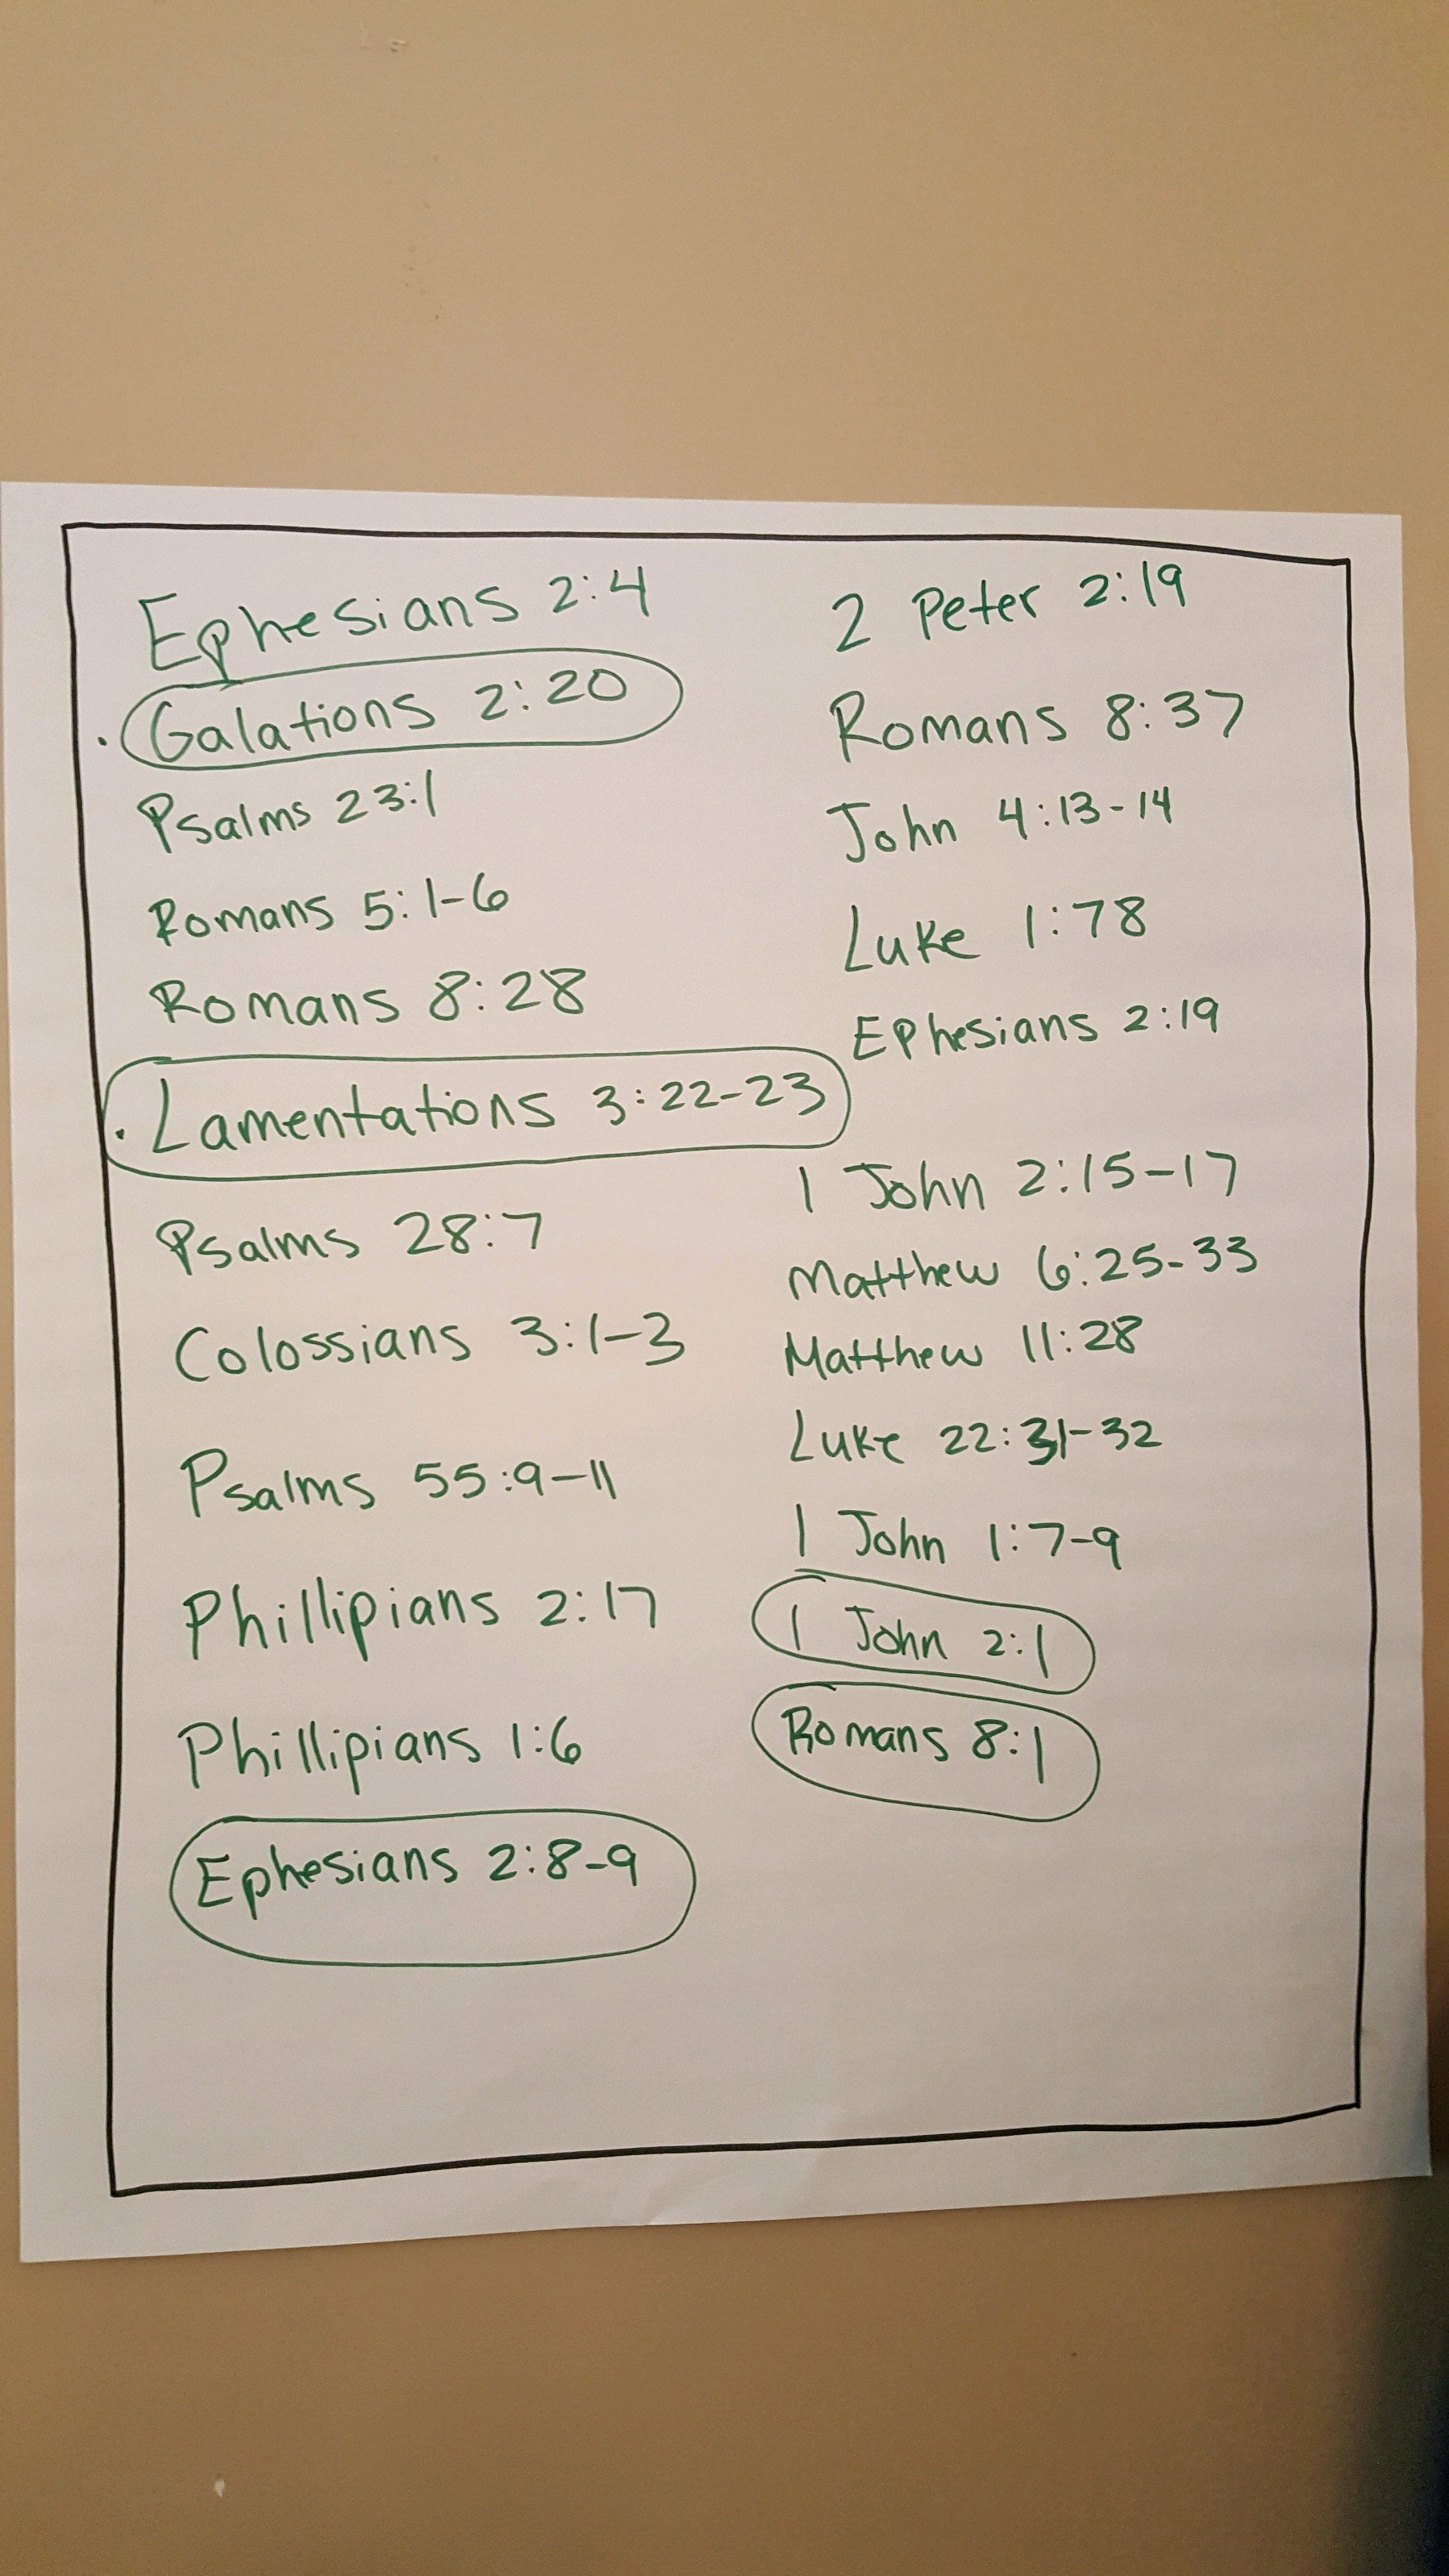 Ephesians 2:4
Galations 2:20
Psalms 23:1
Romans 5:1-6
Romans 8:28
Lamentations 3:22-23
Psalms 28:7
Colossians 3:1-3
Psalms 55:9-11
Phillipians 2:17
Phillipians 1:6
Ephesians 2:8-9
2 Peter 2:19
Romans 8:37
John 4:13-14
Luke 1:78
Ephesians 2:19
1 John 2:15-17
Matthew 6:25-33
Matthew 11:28
Luke 22:31-32
1 John 1:7-9
1 John 2:1
Romans 8:1